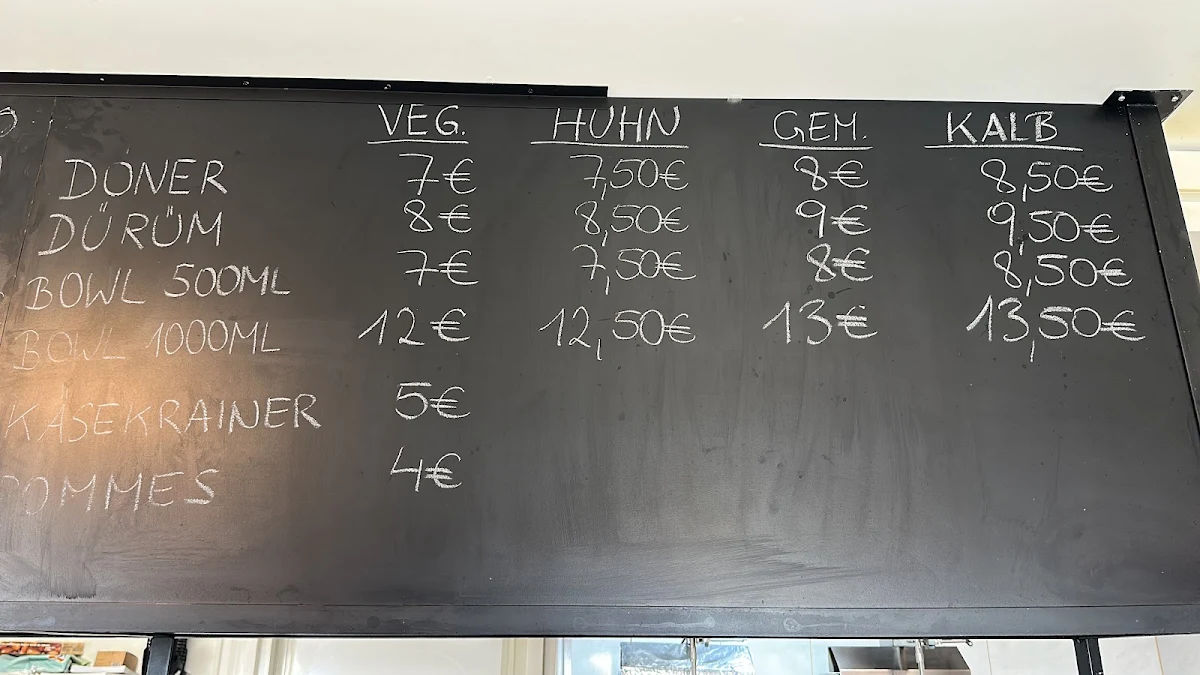 VEG. HUHN GEM. KALB
DÖNER 7€ 7,50€ 8€ 8,50€
DÜRÜM 8€ 8,50€ 9€ 9,50€
BOWL 500ML 7€ 7,50€ 8€ 8,50€
BOWL 1000ML 12€ 12,50€ 13€ 13,50€
KÄSEKRAINER 5€
POMMES 4€